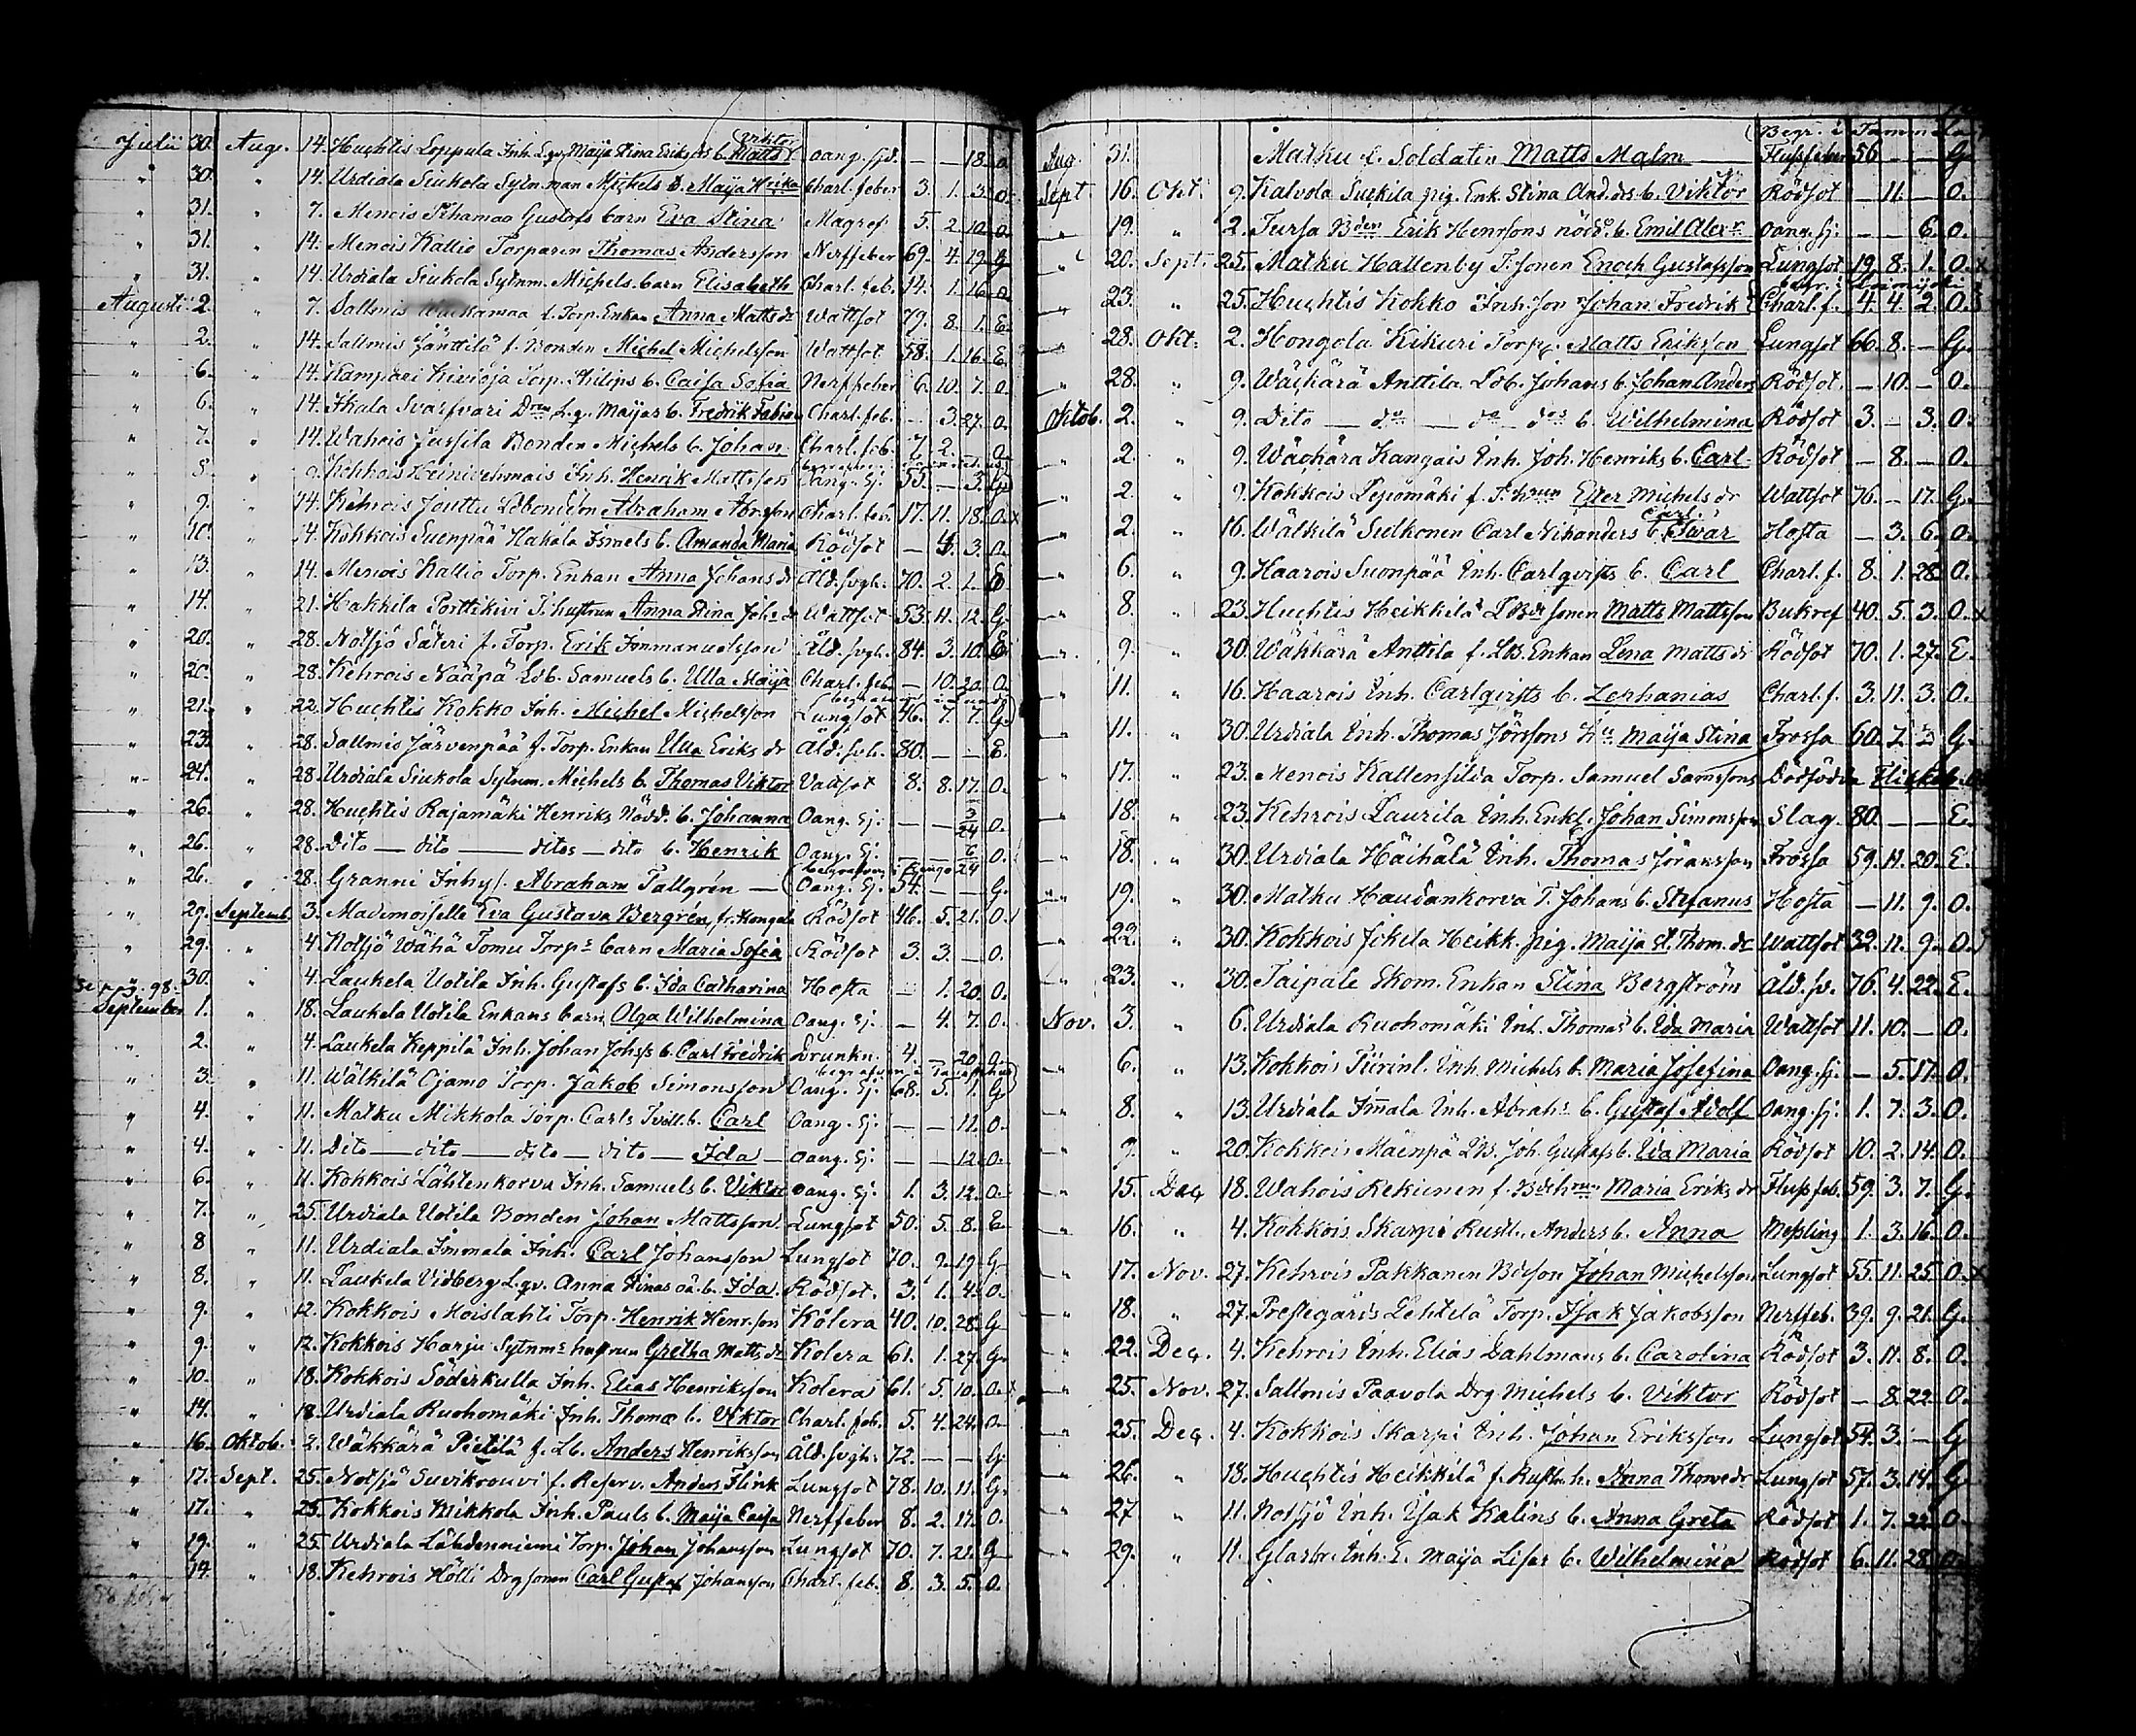 Julii 30. Aug. 14. Huhtis Loppula Inh. Maija Stina Eriks b. Matts Viktor oang. sjd. — — 18. o.
" 30. " 14. Urdiala Siukola Sytn.man Michels b. Maija Heika Charl. feber 3. 1. 3. o.
" 31. " 7. Menois Pihamaa Gustafs barn Eva Stina Magref 5. 2. 10. o.
" 31. " 14. Menois Kallio Torparen Thomas Andersson Nerffeber 69. 4. 19. G.
" 31. " 14. Urdiala Siukola Sytnm. Michels barn Elisabeth Charl. feb. 14. 1. 16. o.
Augusti 2. " 7. Salmis f. Torp. Enkan Anna Matts dr Wattsot 79. 8. 1. E.
" 2. " 14. Salmis Jänttilä f. Bonden Michel Michelsson Wattsot 58. 1. 16. E.
" 6. " 14. Kamppari Kivioja Torp. Philips b. Caisa Sofia Nerffeber 6. 10. 7. o.
" 6. " 14. Ikala Svarfvari Maijas b. Fredrik Fabian Charl. feb. — 3. 27. o.
" 7. " 14. Wahois Jussila Bonden Michels b. Johan Charl. feb. 7. 2. — o.
" 8. " Kokkois Heiniehmais Inh. Henrik Mattsson Oang. Sj. 55. — 3. G.
" 9. " 14. Kehrois Jouttu Abraham Abr.son Charl. feb. 17. 11. 18. o. x
" 10. " 14. Kokkois Suenpää Hakala Ismels b. Amanda Maria Rödsot — 4. 3. o.
" 13. " 14. Menois Kallio Torp. Enkan Anna Johans dr Åld. svgh. 70. 2. 1. E
" 14. " 21. Hakkila Porttikivi T. hustrun Anna Stina Joh. dr Wattsot 53. 11. 12. G.
" 20. " 28. Notsjö Säteri f. Torp. Erik Immanuelsson Åld. svgh. 84. 3. 10. E
" 20. " 28. Kehrois Nääpä Ldb. Samuels b. Ulla Maija Charl. feb. — 10. 20. o.
" 21. " 22. Huhtis Kokko Inh. Michel Michelsson Lungsot 46. 7. 7. G.
" 23. " 28. Salmis Järvenpää f. Torp. Enkan Ulla Eriks dr Åld. svh. 80. — — E.
" 24. " 28. Urdiala Siukola Sytnm. Michels b. Thomas Viktor Vattsot 8. 8. 17. o.
" 26. " 28. Huhtis Rajamäki Henriks Nödd. b. Johanna Oang. Sj. — — 3/24 o.
" 26. " 28. Dito — dito — ditos — dito b. Henrik Oang. Sj. — — 6/24 o.
" 26. " 28. Granni Inhys. Abraham Tallgrén — Oang. Sj. 54. — — G.
" 29. Septemb. 3. Mademoiselle Eva Gustava Bergrén, fr. Hongola Rödsot 46. 5. 21. o.
" 29. " 4. Notsjö Wähä Tomu Torps barn Maria Sofia Rödsot 3. 3. — o.
" 30. " 4. Laukela Uotila Inh. Gustafs b. Ida Catharina Hosta — 1. 20. o.
September 1. " 18. Laukela Uotila Enkans barn Olga Wilhelmina Oang. Sj. — 4. 7. o.
" 2. " 4. Laukela Keppilä Inh. Johan Johss b. Carl Fredrik Drunkn. 4. — 20. o.
" 3. " 11. Wälkilä Ojamo Torp. Jakob Simonsson Oang. Sj. 68. 5. 1. G
" 4. " 11. Matku Mikkola Torp. Carls Tvill. b. Carl Oang. Sj. — — 11. o.
" 4. " 11. Dito — dito — dito — dito — Ida — Oang. Sj. — — 12. o.
" 6. " 11. Kokkois Lähtenkorva Inh. Samuels b. Viktor oang. Sj. 1. 3. 12. o.
" 7. " 25. Urdiala Uotila Bonden Johan Mattsson Lungsot 50. 5. 8. E
" 8 " 11. Urdiala Immala Inh. Carl Johansson Lungsot 70. 9. 19. G
" 8. " 11. Laukela Vidberg Lqv. Anna Stinas oä. b. Ida. Rödsot. 3. 1. 4. o.
" 9. " 12. Kokkois Moislahti Torp. Henrik Henr.son Kolera 40. 10. 28. G
" 9. " 12. Kokkois Harju Sytnms hustrun Gretha Matts dr Kolera 61. 1. 27. G.
" 10. " 18. Kokkois Söderkulla Inh. Elias Henriksson Kolera 61. 5. 10. o. x
" 14. " 18. Urdiala Ruohomäki Inh. Thomæ b. Viktor Charl. feb. 5. 4. 24. o.
" 16. Oktob. 2. Wäkkärä Pietilä f. Lb. Anders Henriksson Åld. svgh. 72. — — G.
" 17. Sept. 25. Notsjö Suvikrouvi f. Reserv. Anders Flink Lungsot 78. 10. 11. G.
" 17. " 25. Kokkois Mikkola Inh. Pauls b. Maija Caisa Nerffeber 8. 2. 17. o.
" 19. " 25. Urdiala Lähdenniemi Torp. Johan Johansson Lungsot 70. 7. 21. G
" 14. " 18. Kehrois Hölli Drgsonen Carl Gustaf Johansson Charl. feb. 8. 3. 5. o.
Begr. i Tammela
Aug. 31. Matku f. Soldaten Matts Malm Flussfeber 56 — — G.
Sept. 16. Okt. 9. Kalvola Suckila pig. Enk. Stina And. drs b. Viktor Rödsot — 11. — o.
" 19. " 2. Tursa Bden Erik Henrssons nödd. b. Emil Alexr Oang. sj. — — 6. o.
" 20. Sept. 25. Matku Hallenby T. sonen Enoch Gustafsson Lungsot 19. 8. 1. o. x
" 23. " 25. Huhtis Kokko Inh. son Johan Fredrik Charl. f. 4. 4. 2. o.
" 28. Okt. 2. Hongola Kikuri Torp. Matts Eriksson Lungsot 66. 8. — G.
" 28. " 9. Wäkkärä Anttila Ldb. Johans b. Johan Anders Rödsot — 10. — o.
Oktob. 2. " 9. Dito — do — do dos b. Wilhelmina Rödsot 3. — 3. o.
" 2 " 9. Wäkkärä Kangais Inh. Joh. Henriks b. Carl Rödsot — 8. — o.
" 2. " 9. Kokkois Lepiomäki f. T. hrun Ester Michels dr Wattsot 76. — 17. G.
" 2. " 16. Wälkilä Sielkonen Carl Nikanders b. Carl Edvär Hosta — 3. 6. o.
" 6. " 9. Haarois Suonpää Inh. Carlqvists b. Carl Charl. f. 8. 1. 28. o.
" 8. " 23. Huhtis Heikkilä sonen Matts Mattsson Bukref 40. 5. 3. o. x
" 9. " 30. Wäkkärä Anttila f. Lb. Enkan Lena Matts dr Rödsot 70. 1. 27. E.
" 11. " 16. Haarois Inh. Carlqvists b. Zephanias Charl. f. 3. 11. 3. o.
" 11. " 30. Urdiala Inh. Thomas Jörssons Hu Maija Stina Frossa 60. G.
" 17. " 23. Menois Kallensilda Torp. Samuel Samssons Dödfödda Flickeb.
" 18. " 23. Kehrois Laurila Inh. Enkl. Johan Simonsson Slag. 80. — — E.
" 18. " 30. Urdiala Häihälä Inh. Thomas Jöransson Frossa 59. 11. 20. E.
" 19. " 30. Matku Haudankorva T. Johans b. Stefanus Hosta — 11. 9. o.
" 22. " 30. Kokkois Jokila Heikk. pig. Maija St. Thom. dr Wattsot 32. 11. 9. o.
" 23. " 30. Taipale Skom. Enkan Stina Bergström Åld. sv. 76. 4. 22. E.
Nov. 3. " 6. Urdiala Ruohomäki Inh. Thomas b. Eda Maria Wattsot 11. 10. — o.
" 6. " 13. Kokkois Tiirinl. Inh. Michels b. Maria Josefina Oang. sj. — 5. 17. o.
" 8. " 13. Urdiala Im̄ala Inh. Abrahs b. Gustaf Adolf Oang. sj. 1. 7. 3. o.
" 9. " 20. Kokkois Mäenpä Lb. Joh. Gustafs b. Eda Maria Rödsot 10. 2. 14. o.
" 15. Dec. 18. Wahois Kekunen f. Maria Eriks dr Flussfeb. 59. 3. 7. G.
" 16. " 4. Kokkois Skarpi Rustl. Anders b. Anna Messling 1. 3. 16. o.
" 17. Nov. 27. Kehrois Pakkanen Bdson Johan Michelsson Lungsot 55. 11. 25. o. x
" 18. " 27. Prestegårds Lehtilä Torp. Isak Jakobsson Nerffeb. 39. 9. 21. G.
" 22. Dec. 4. Kehrois Inh. Elias Dahlmans b. Carolina Rödsot 3. 11. 8. o.
" 25. Nov. 27. Salmis Paavola Drg Michels b. Viktor Rödsot — 8. 22. o.
" 25. Dec. 4. Kokkois Skarpi Inh. Johan Eriksson Lungsot 54. 3. — G
" 26. " 18. Huhtis Heikkilä f. Rusth. h. Anna Thomædr Lungsot 57. 3. 14. G
" 27 " 11. Notsjö Inh. Isak Kalins b. Anna Greta Rödsot 1. 7. 22. o.
" 29. " 11. Glasbr. Inh. E. Maija Lisas b. Wilhelmina Rödsot 6. 11. 28. o.